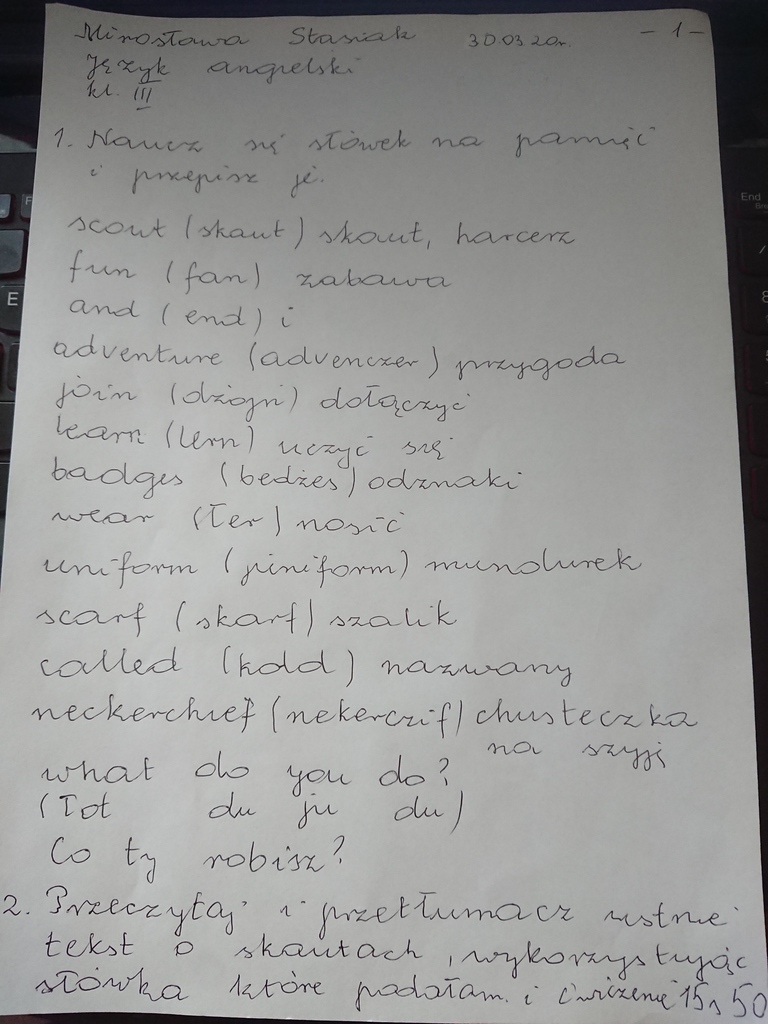 Mirosława Stasiak 30.03.20r. - 1 -
Język angielski
kl. III
1. Naucz się słówek na pamięć
i przepisz je.
scout (skaut) skaut, harcerz
fun (fan) zabawa
and (end) i
adventure (advenczer) przygoda
join (dżojn) dołączyć
learn (lern) uczyć się
badges (bedżes) odznaki
wear (łer) nosić
uniform (juniform) mundurek
scarf (skarf) szalik
called (kold) nazwany
neckerchief (nekerczif) chusteczka
na szyję
what do you do?
(łot du ju du)
Co ty robisz?
2. Przeczytaj i przetłumacz ustnie
tekst o skautach, wykorzystując
słówka które podałam. i ćwiczenie 15 s 50
End
E
F